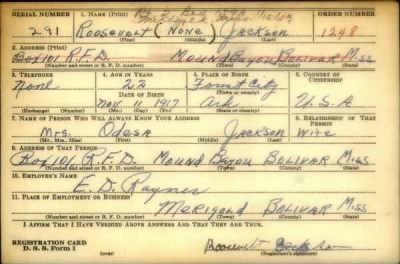 SERIAL NUMBER 1. NAME (Print) ORDER NUMBER
291 ROOSEVELT (NONE) JACKSON 1248
(First) (Middle) (Last)
2. ADDRESS (Print)
BOX 101 R.F.D. MOUND BAYOU BOLIVAR MISS
(Number and street or R. F. D. number) (Town) (County) (State)
3. TELEPHONE 4. AGE IN YEARS 5. PLACE OF BIRTH 6. COUNTRY OF CITIZENSHIP
None 22 Forrest City
DATE OF BIRTH (Town or county)
Nov 11 1917 Ark U.S.A
7. NAME OF PERSON WHO WILL ALWAYS KNOW YOUR ADDRESS 8. RELATIONSHIP OF THAT PERSON
Mrs. Odesa Jackson Wife
(Mr., Mrs., Miss) (First) (Middle) (Last)
9. ADDRESS OF THAT PERSON
Box 101 R.F.D. MOUND Bayou BOLIVAR MISS
(Number and street or R. F. D. number) (Town) (County) (State)
10. EMPLOYER'S NAME
E. D.
11. PLACE OF EMPLOYMENT OR BUSINESS
MERIGOLD BOLIVAR MISS
(Number and street or R. F. D. number) (Town) (County) (State)
I AFFIRM THAT I HAVE VERIFIED ABOVE ANSWERS AND THAT THEY ARE TRUE.
REGISTRATION CARD
D. S. S. Form 1 Roosevelt Jackson
(Registrant's signature)